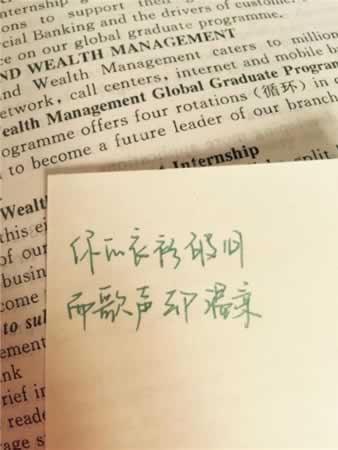 ons to support their
cial Banking and the drivers of
ce on our global graduate programme.
ND WEALTH MANAGEMENT
nd Wealth Management caters to million
etwork, call centers, internet and mobile ba
ealth Management Global Graduate Program
ogramme offers four rotations (循环) in
to become a future leader of our branch
t Internship
split
Wealt
this ei
of our
busin
come
to
ement
nk
rief in
reade
age s
你的衣衫破旧
而歌声却温柔